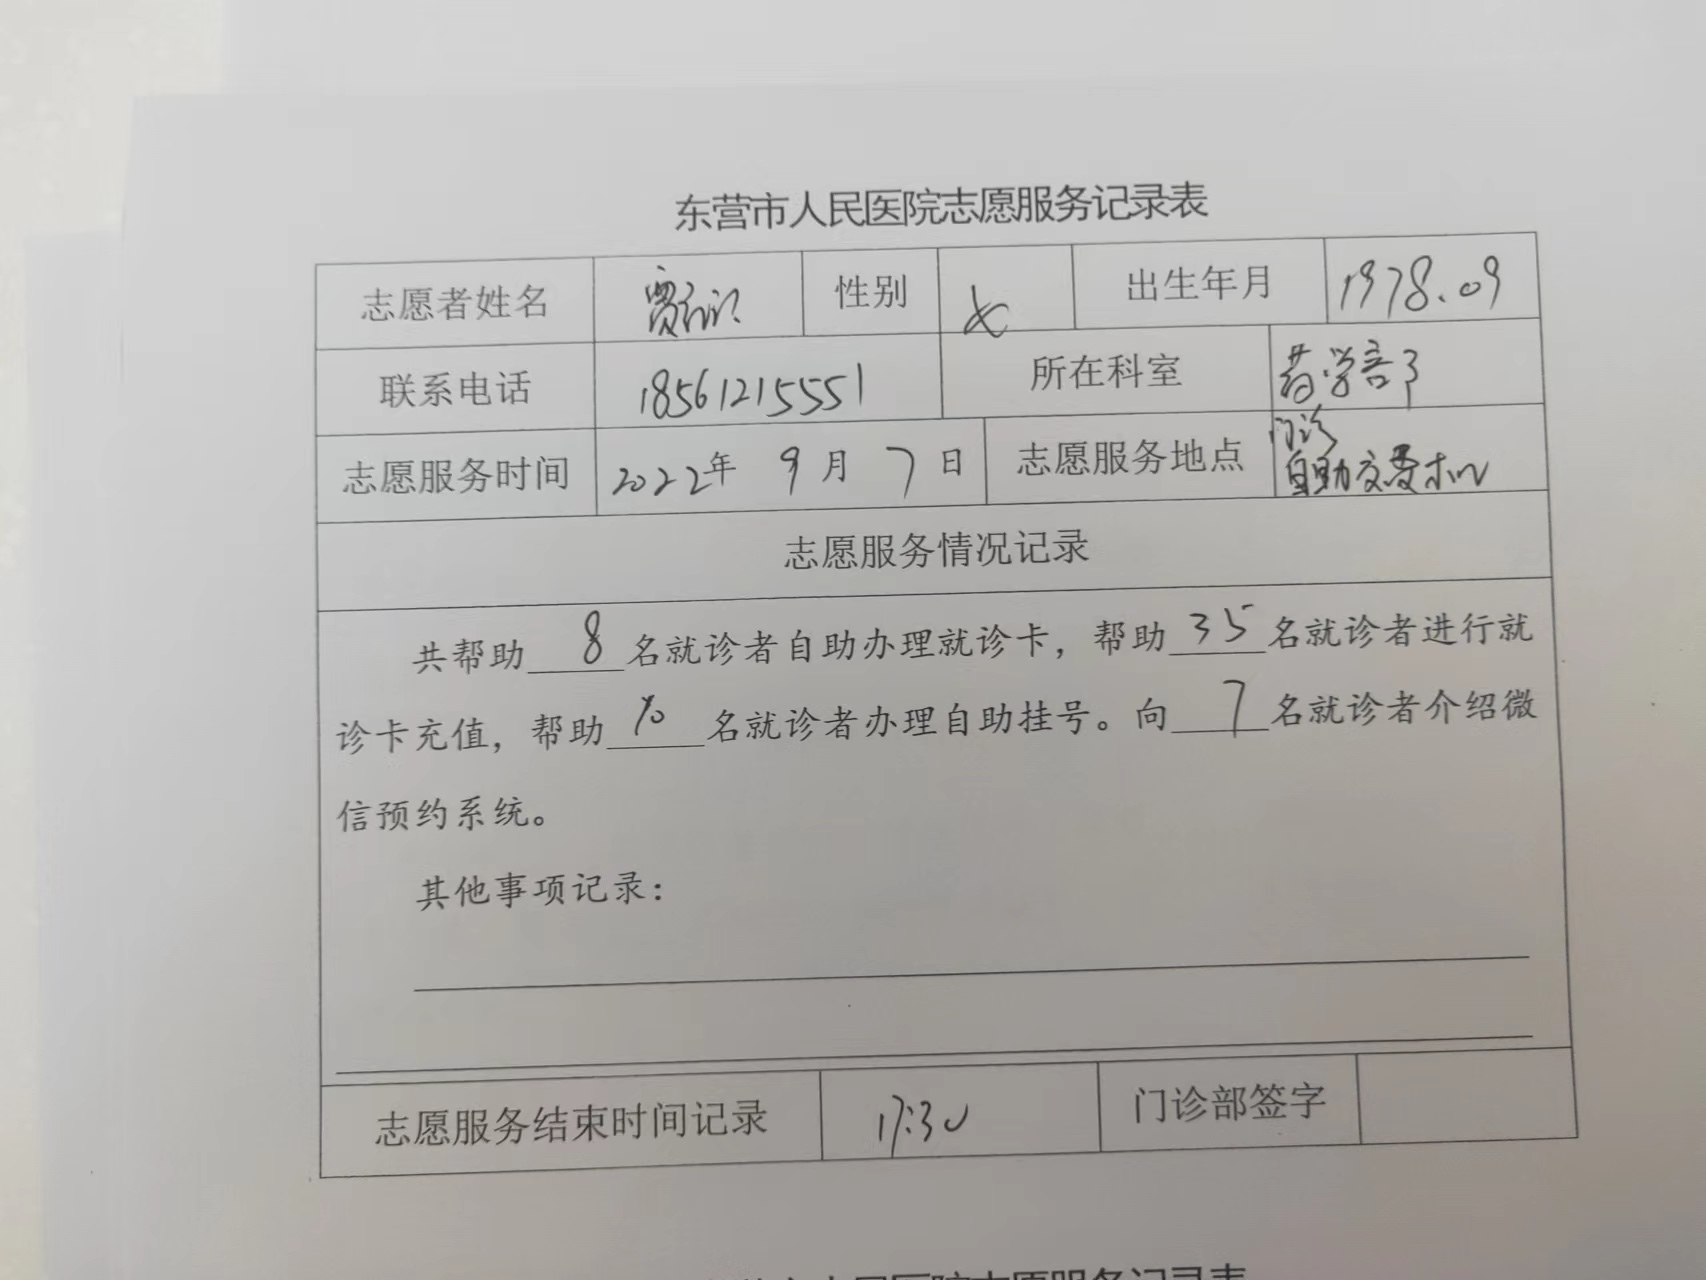 东营市人民医院志愿服务记录表
志愿者姓名 贾 性别 女 出生年月 1978.09
联系电话 18561215551 所在科室 药学部
志愿服务时间 2022年 9月 7日 志愿服务地点 门诊
自助交费机
志愿服务情况记录
共帮助 8 名就诊者自助办理就诊卡，帮助 35 名就诊者进行就
诊卡充值，帮助 10 名就诊者办理自助挂号。向 7 名就诊者介绍微
信预约系统。
其他事项记录：
志愿服务结束时间记录 17:30 门诊部签字